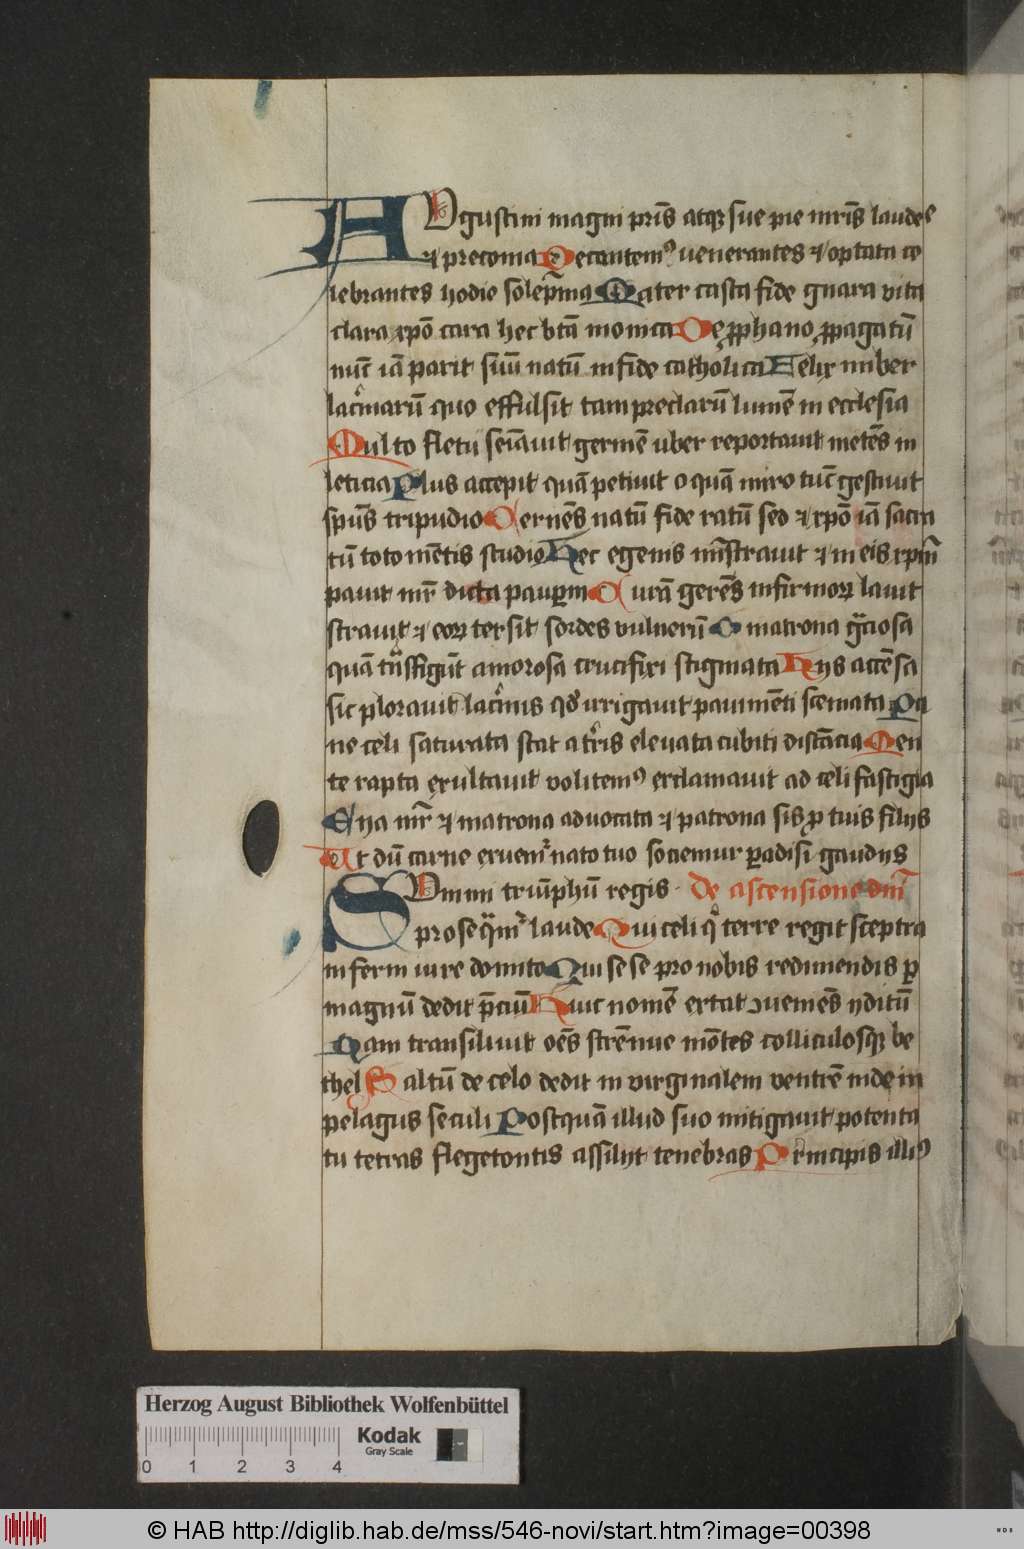 AVgustini magni pr̄is atqꝫ sue pie mr̄is laudes
⁊ preconia Decantemꝰ venerantes ⁊ optata ce
lebrantes hodie solēpnia Mater casta fide gnara vita
clara xp̄o cara hec btā monica De ꝓphano ꝓpagatū
nūc iā parit suū natū in fide catholica Felix imber
lacͥmarū quo effulsit tam preclarū lumē in ecclesia
Multo fletu seīavit germē uber reportauit metēs in
leticia Plus accepit quā petiuit o quā miro tūc gestiuit
sp̄us tripudio Cernēs natū fide ratū sed ⁊ xp̄o iā sacra
tū toto mētis studio Hec egenis mīstrauit ⁊ in eis xp̄m
pauit mr̄ dicta pauꝑum Curā gerēs infirmoꝝ lauit
strauit ⁊ eoꝝ tersit sordes vulnerū O matrona gͣciosa
quā tͣnsfigūt amorosa crucifixi stigmata Hijs accēsa
sic plorauit lacͥmis qͦd irrigauit pauimēti scemata Pa
ne celi saturata stat a tͥris eleuata cubiti distācia Men
te rapta exultauit volitemꝰ exclamauit ad celi fastigia
Eya mr̄ ⁊ matrona aduocata ⁊ patrona sis ꝓ tuis filijs
Ut dū carne exuemͬ nato tuo sociemur ꝑadisi gaudijs
SVmmi triūphū regis De ascensione dn̄i
prosequamͬ laude Qui celi qͥ terre regit sceptra
inferni iure domito Qui sese pro nobis redimendis ꝑ
magnū dedit p̄ciū Huic nomē extat ↄueniēs yditū
Nam transiliuit oēs strēnue mōtes colliculosqꝫ be
thel Saltū de celo dedit in virginalem ventrē inde in
pelagus seculi Postquā illud suo mitigauit potenta
tu tetras flegetontis assilijt tenebras Principis illiꝰ
Herzog August Bibliothek Wolfenbüttel
Kodak
Gray Scale
0 1 2 3 4
© HAB http://diglib.hab.de/mss/546-novi/start.htm?image=00398